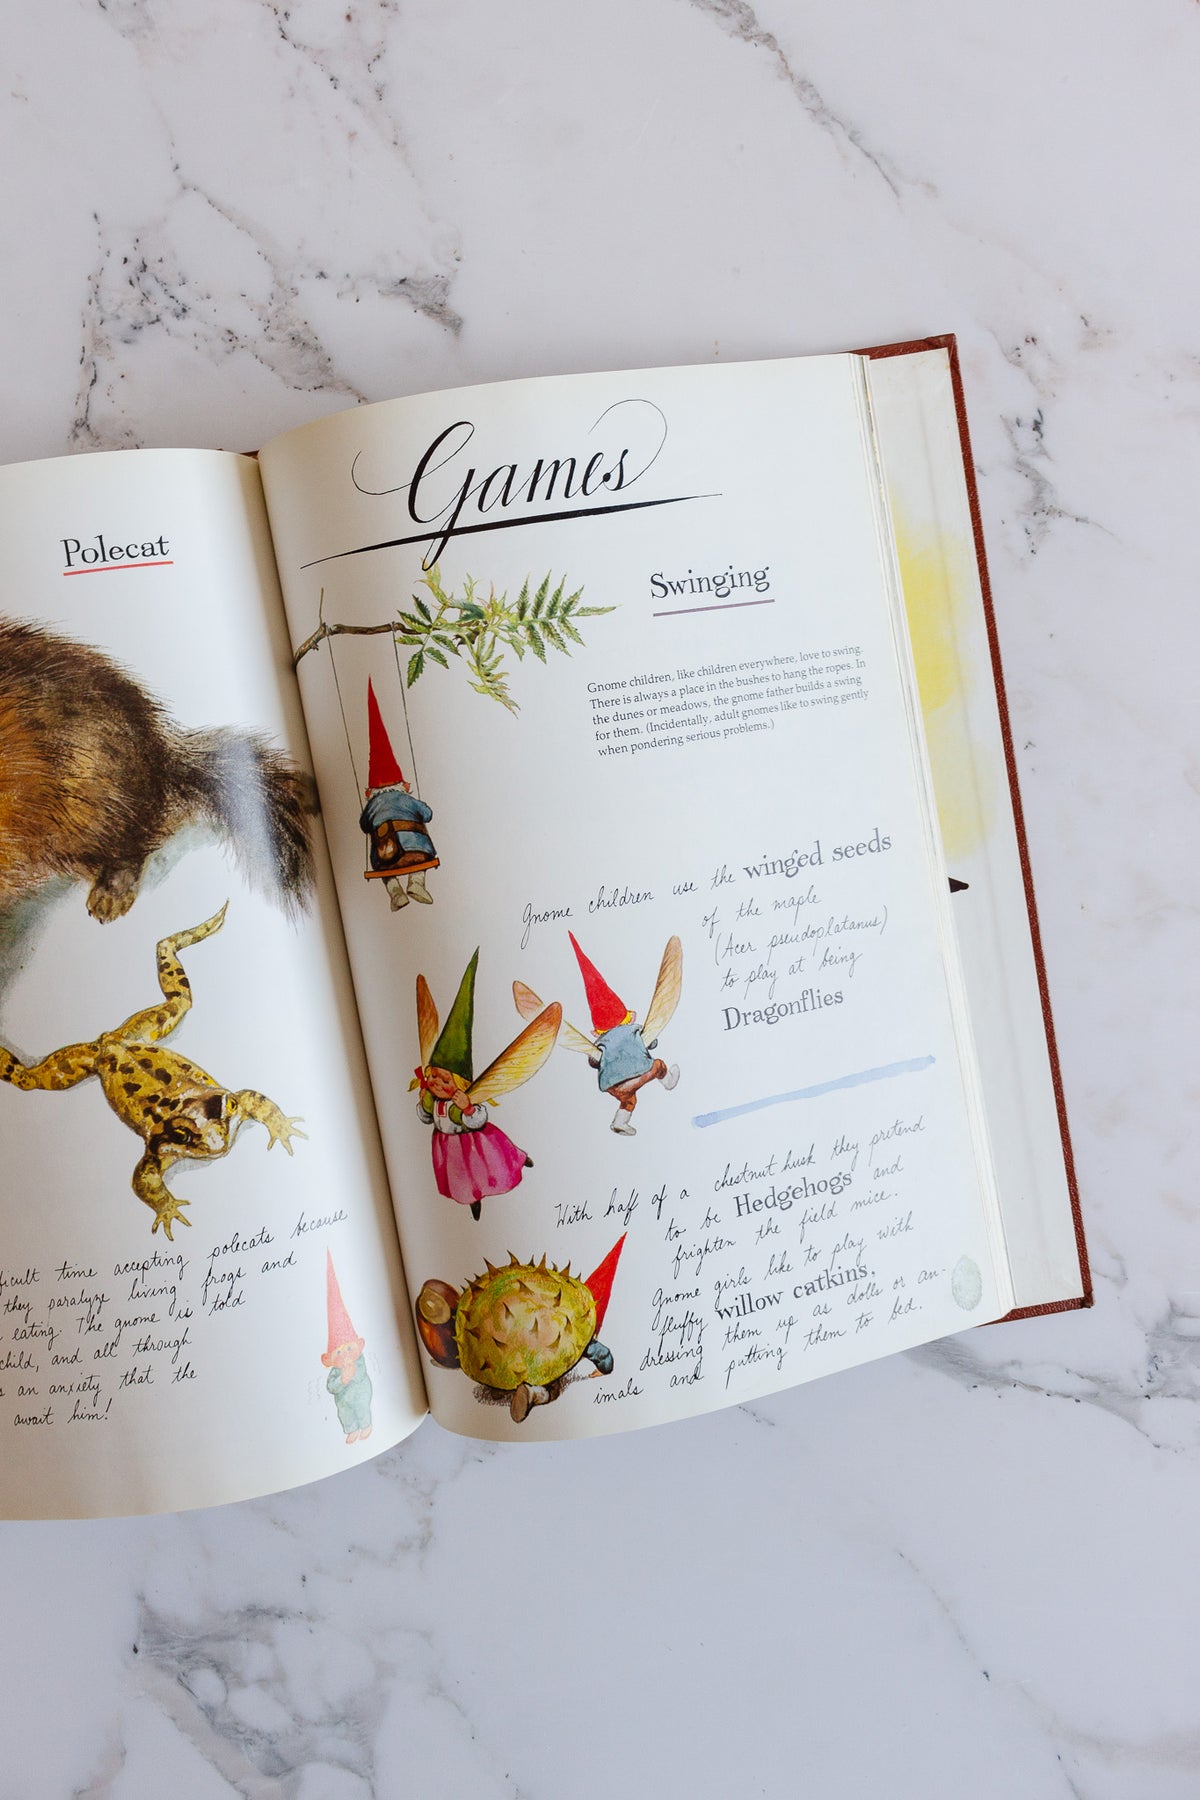 Polecat
time accepting polecats because
they paralyze living frogs and
eating. The gnome is told
child, and all through
an anxiety that the
await him!
Games
Swinging
Gnome children, like children everywhere, love to swing.
There is always a place in the bushes to hang the ropes. In
the dunes or meadows, the gnome father builds a swing
for them. (Incidentally, adult gnomes like to swing gently
when pondering serious problems.)
Gnome children use the winged seeds
of the maple
(Acer pseudoplatanus)
to play at being
Dragonflies
With half of a chestnut husk they pretend
to be Hedgehogs and
frighten the field mice.
Gnome girls like to play with
fluffy willow catkins,
dressing them up as dolls or an-
imals and putting them to bed.